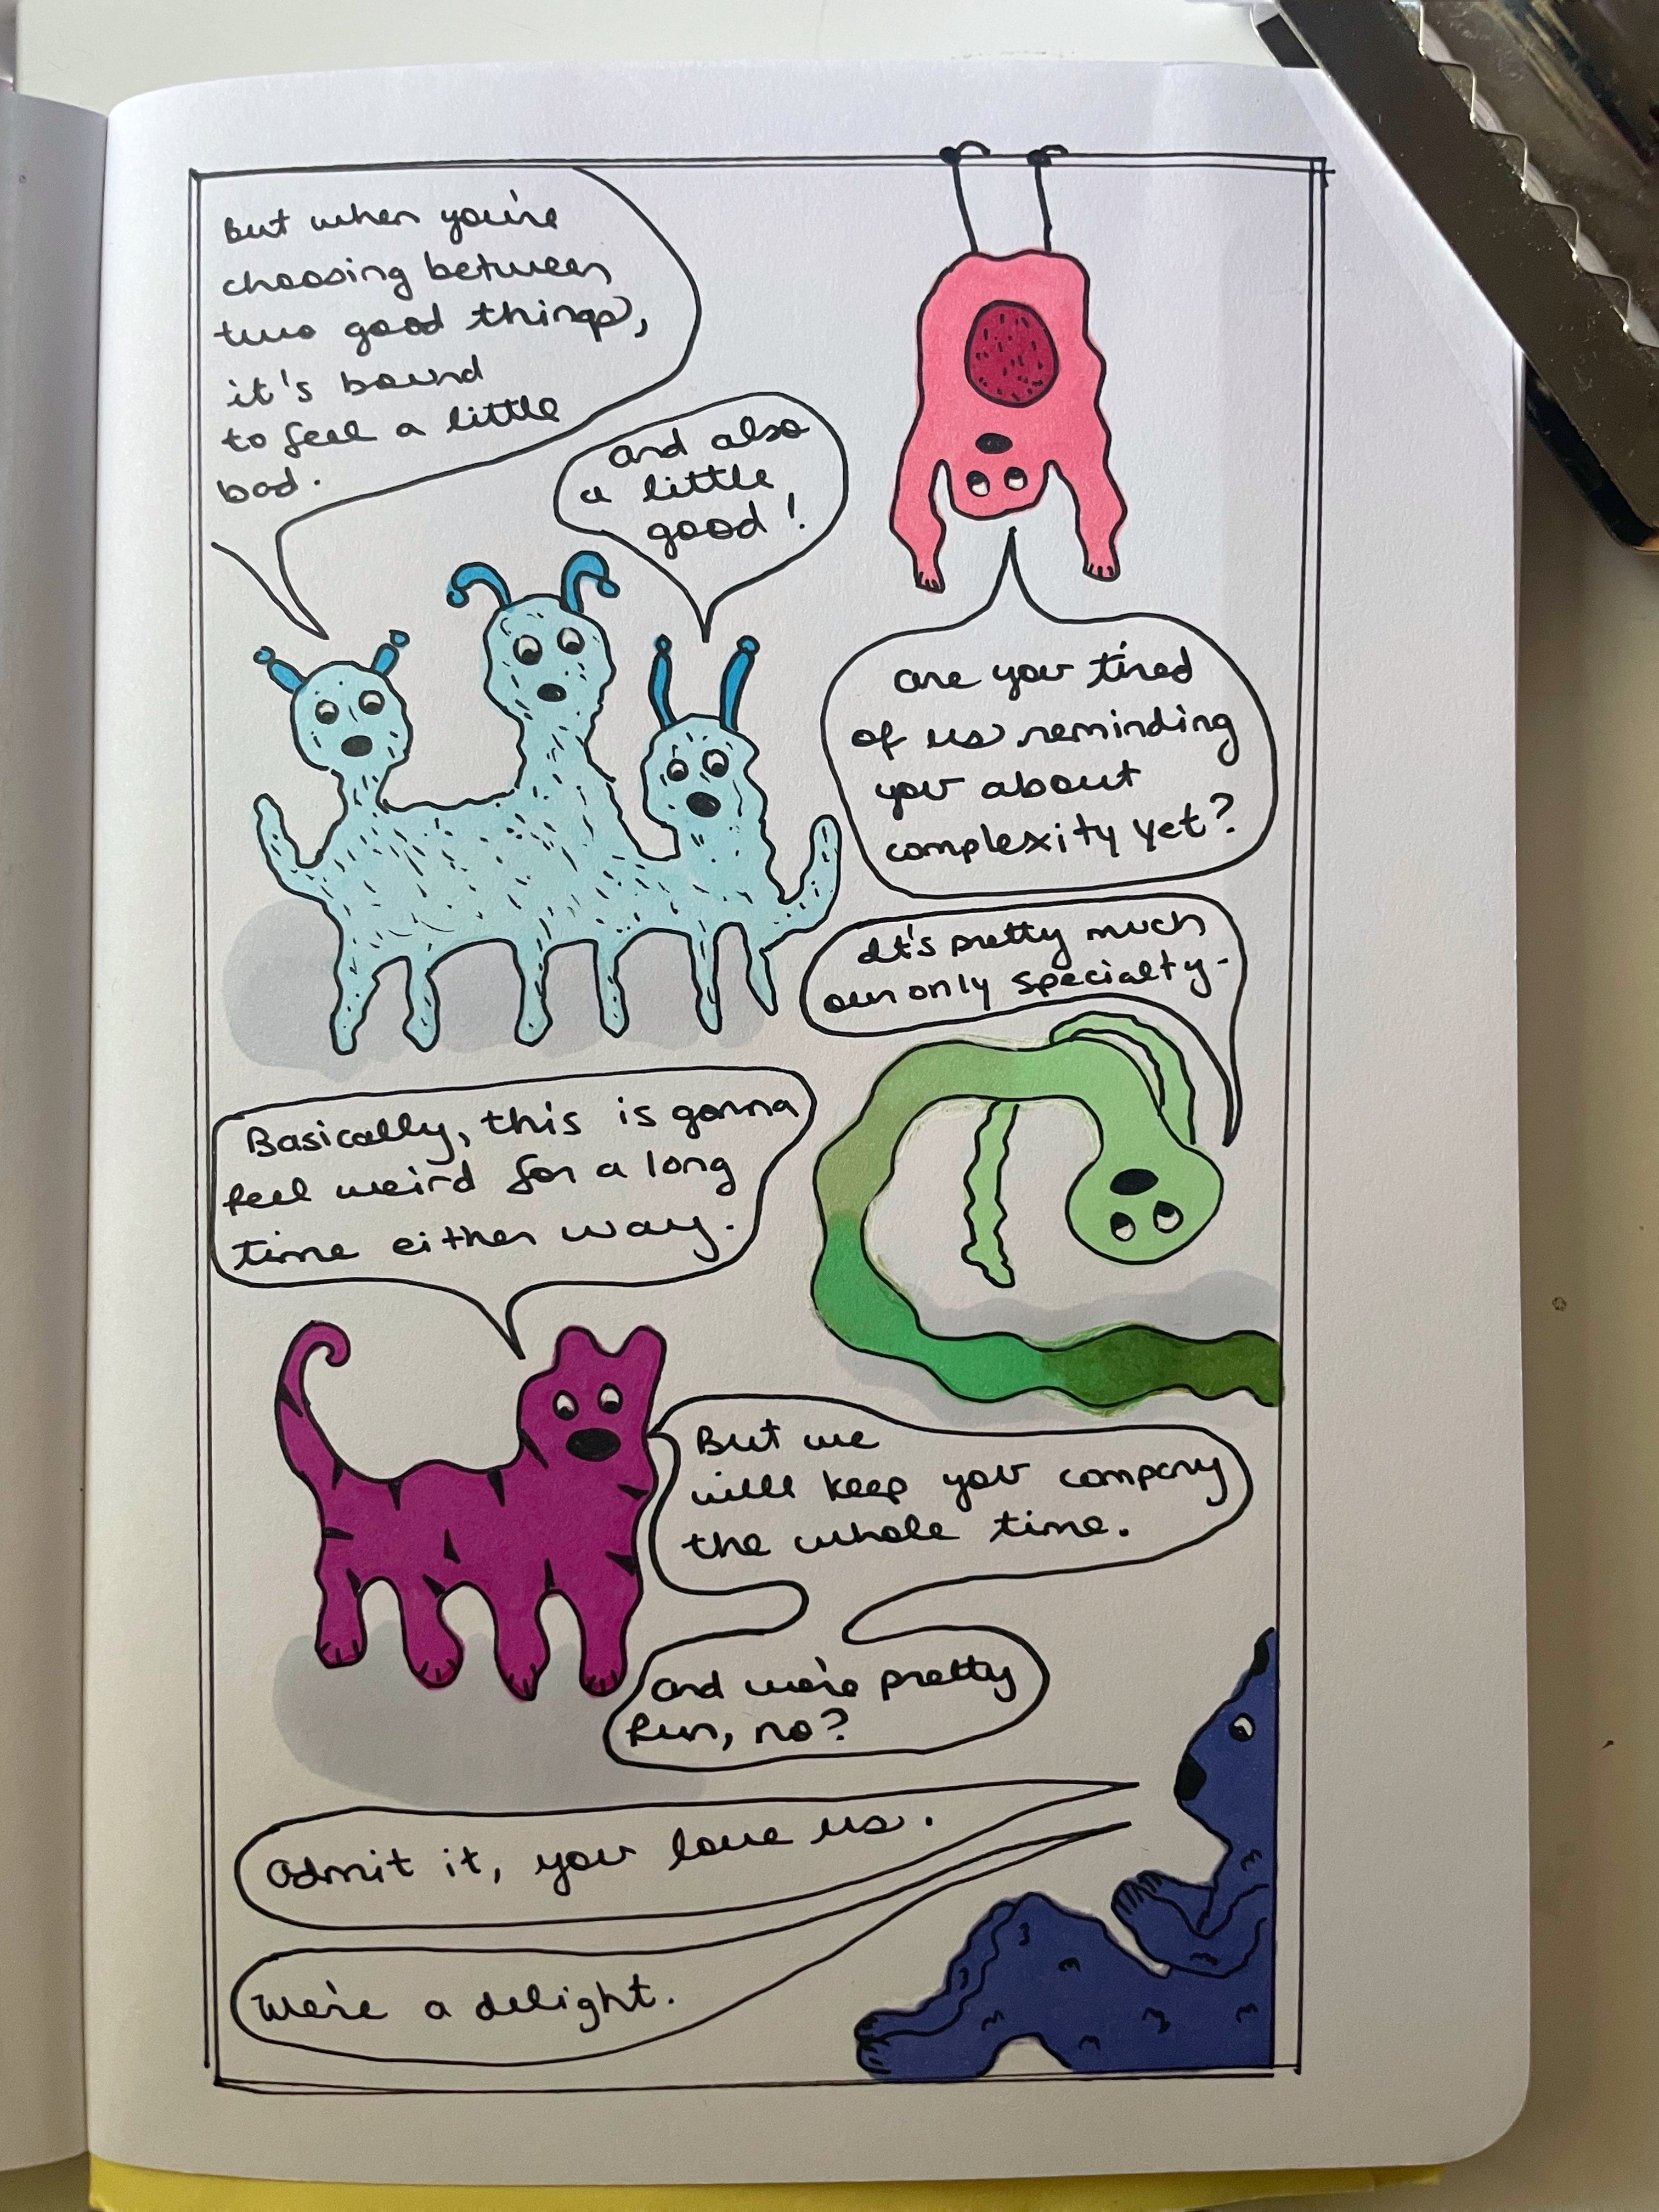 But when you're
choosing between
two good things,
it's bound
to feel a little
bad.
and also
a little
good!
are you tired
of us reminding
you about
complexity yet?
It's pretty much
our only specialty.
Basically, this is gonna
feel weird for a long
time either way.
But we
will keep you company
the whole time.
and we're pretty
fun, no?
Admit it, you love us.
We're a delight.